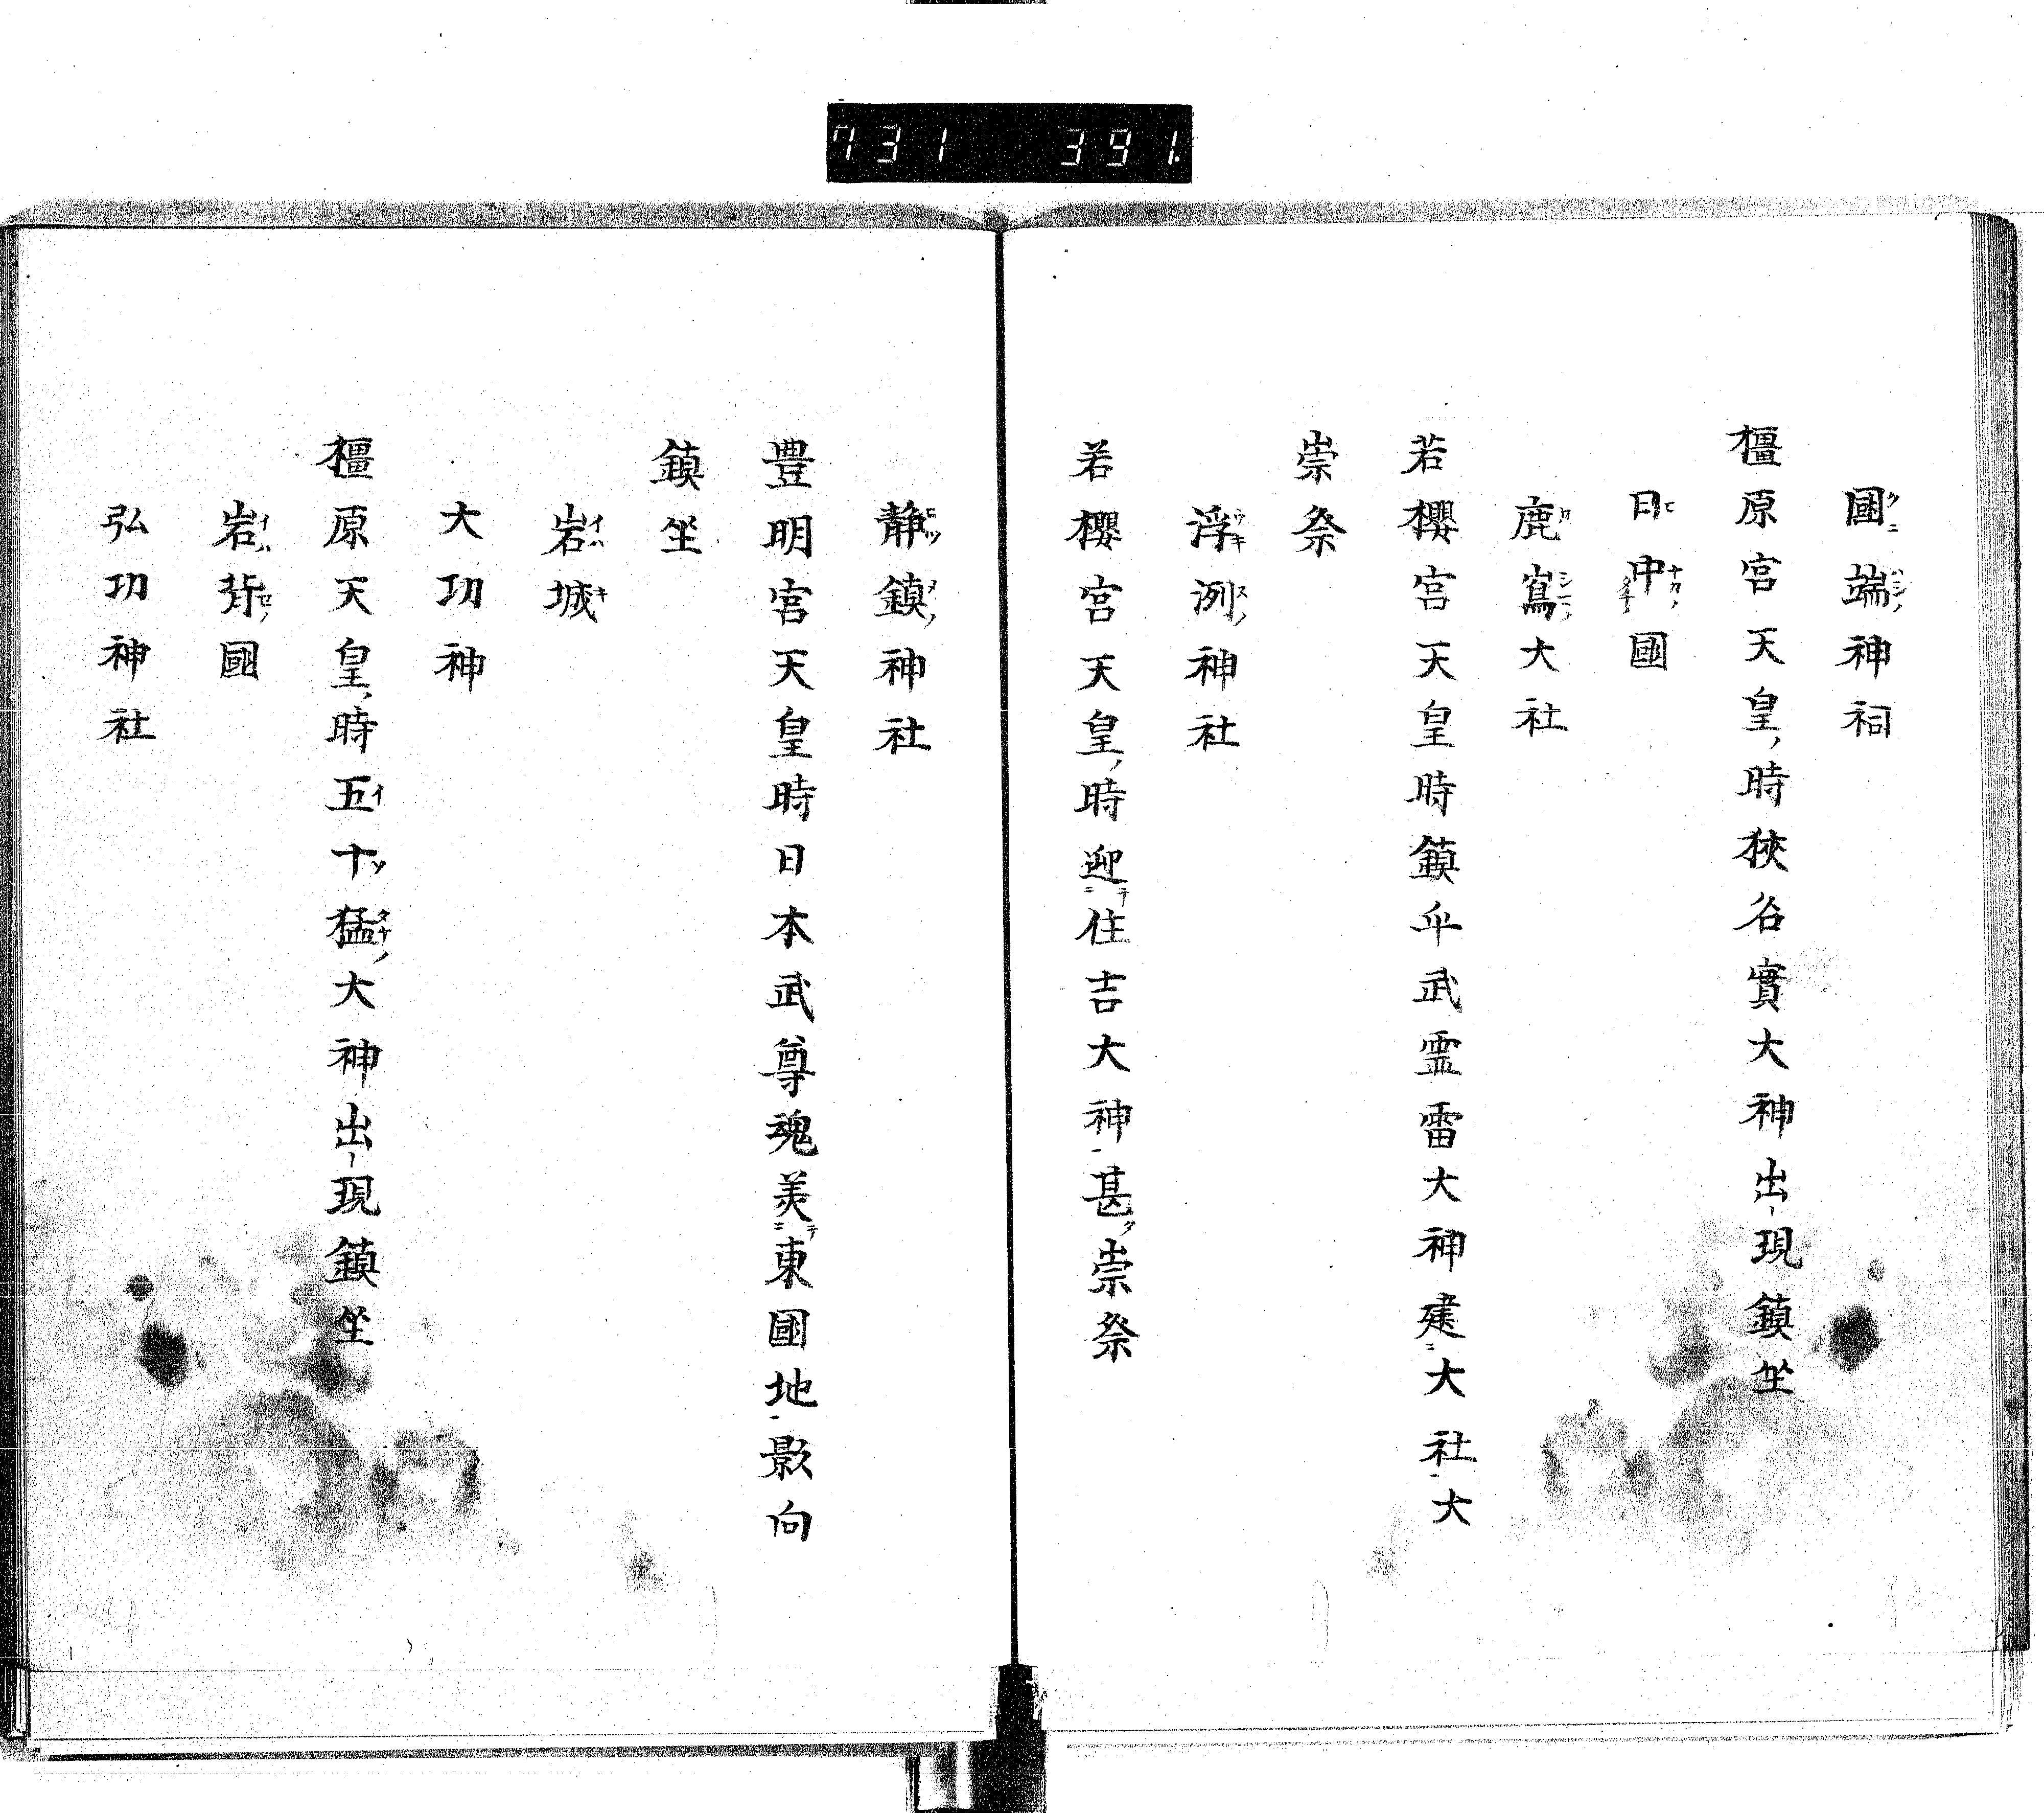 731 391.
國端神祠
橿原宮天皇時狹名實大神出現鎮坐
日中國
鹿嶌大社
若櫻宮天皇時鎮平武霊雷大神建大社大
崇祭
浮洌神社
若櫻宮天皇時迎住吉大神甚崇祭
静鎮神社
豊明宮天皇時日本武尊魂美東國地影向
鎮坐
岩城
大功神
橿原天皇時五十猛大神出現鎮坐
岩背國
弘功神社